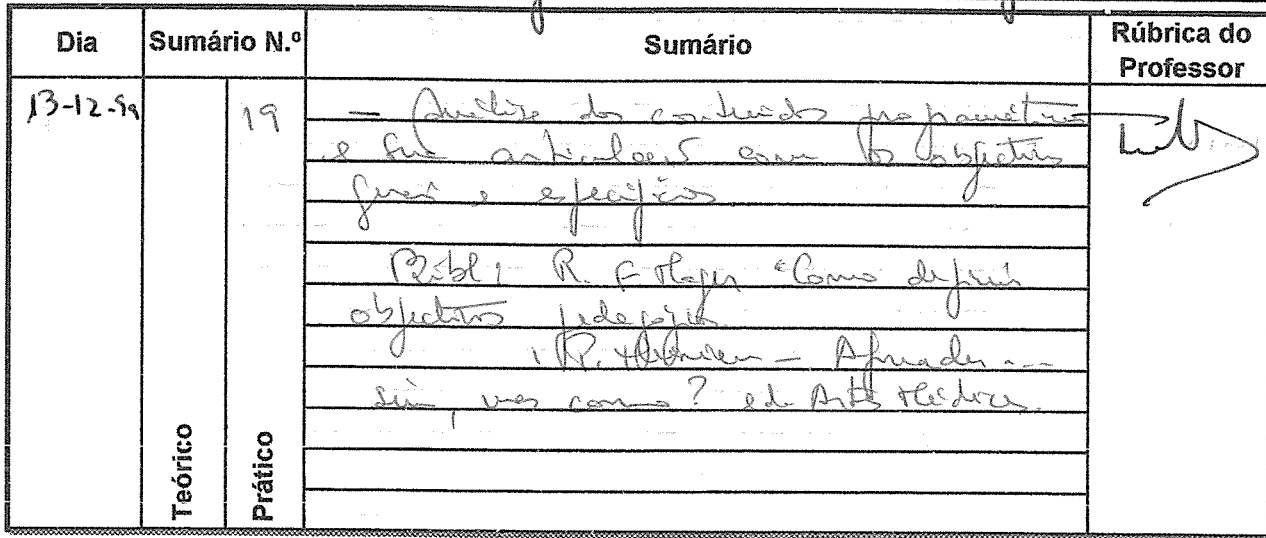 Dia Sumário N.º Sumário Rúbrica do Professor
13-12-99 19 - Análise dos conteúdos programáticos
e sua articulação com os objectivos
gerais e específicos
Bibl: R. F. Mager "Como definir
objectivos pedagógicos
P. Meirieu - Aprender...
sim, mas como? ed. Artes Médicas.
Teórico Prático